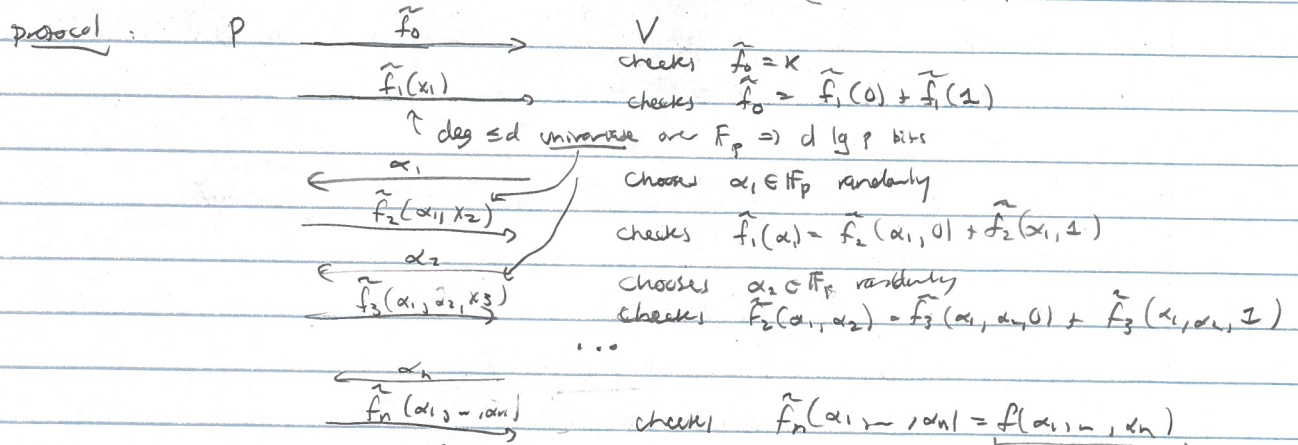 protocol : P f̃₀ V
checks f̃₀ = K
f̃₁(x₁) checks f̃₀ = f̃₁(0) + f̃₁(1)
↑ deg ≤d univariate over F_p => d lg p bits
α₁ chooses α₁ ∈ F_p randomly
f̃₂(α₁, x₂) checks f̃₁(α₁) = f̃₂(α₁, 0) + f̃₂(α₁, 1)
α₂ chooses α₂ ∈ F_p randomly
f̃₃(α₁, α₂, x₃) checks f̃₂(α₁, α₂) = f̃₃(α₁, α₂, 0) + f̃₃(α₁, α₂, 1)
...
αₙ
f̃ₙ(α₁, –, αₙ) checks f̃ₙ(α₁, –, αₙ) = f(α₁, –, αₙ)